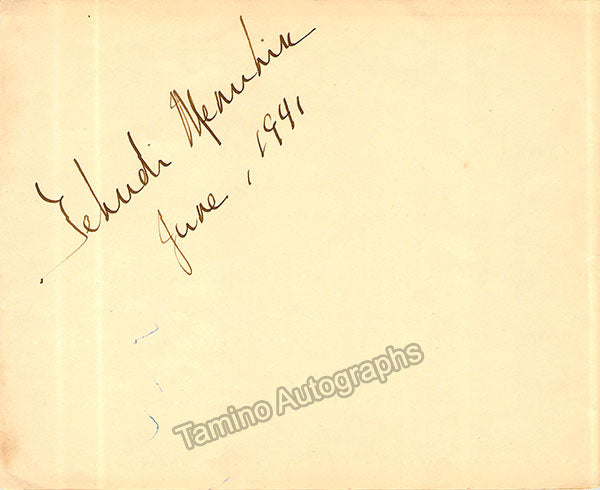 Yehudi Menuhin
June, 1941
Tamino Autographs